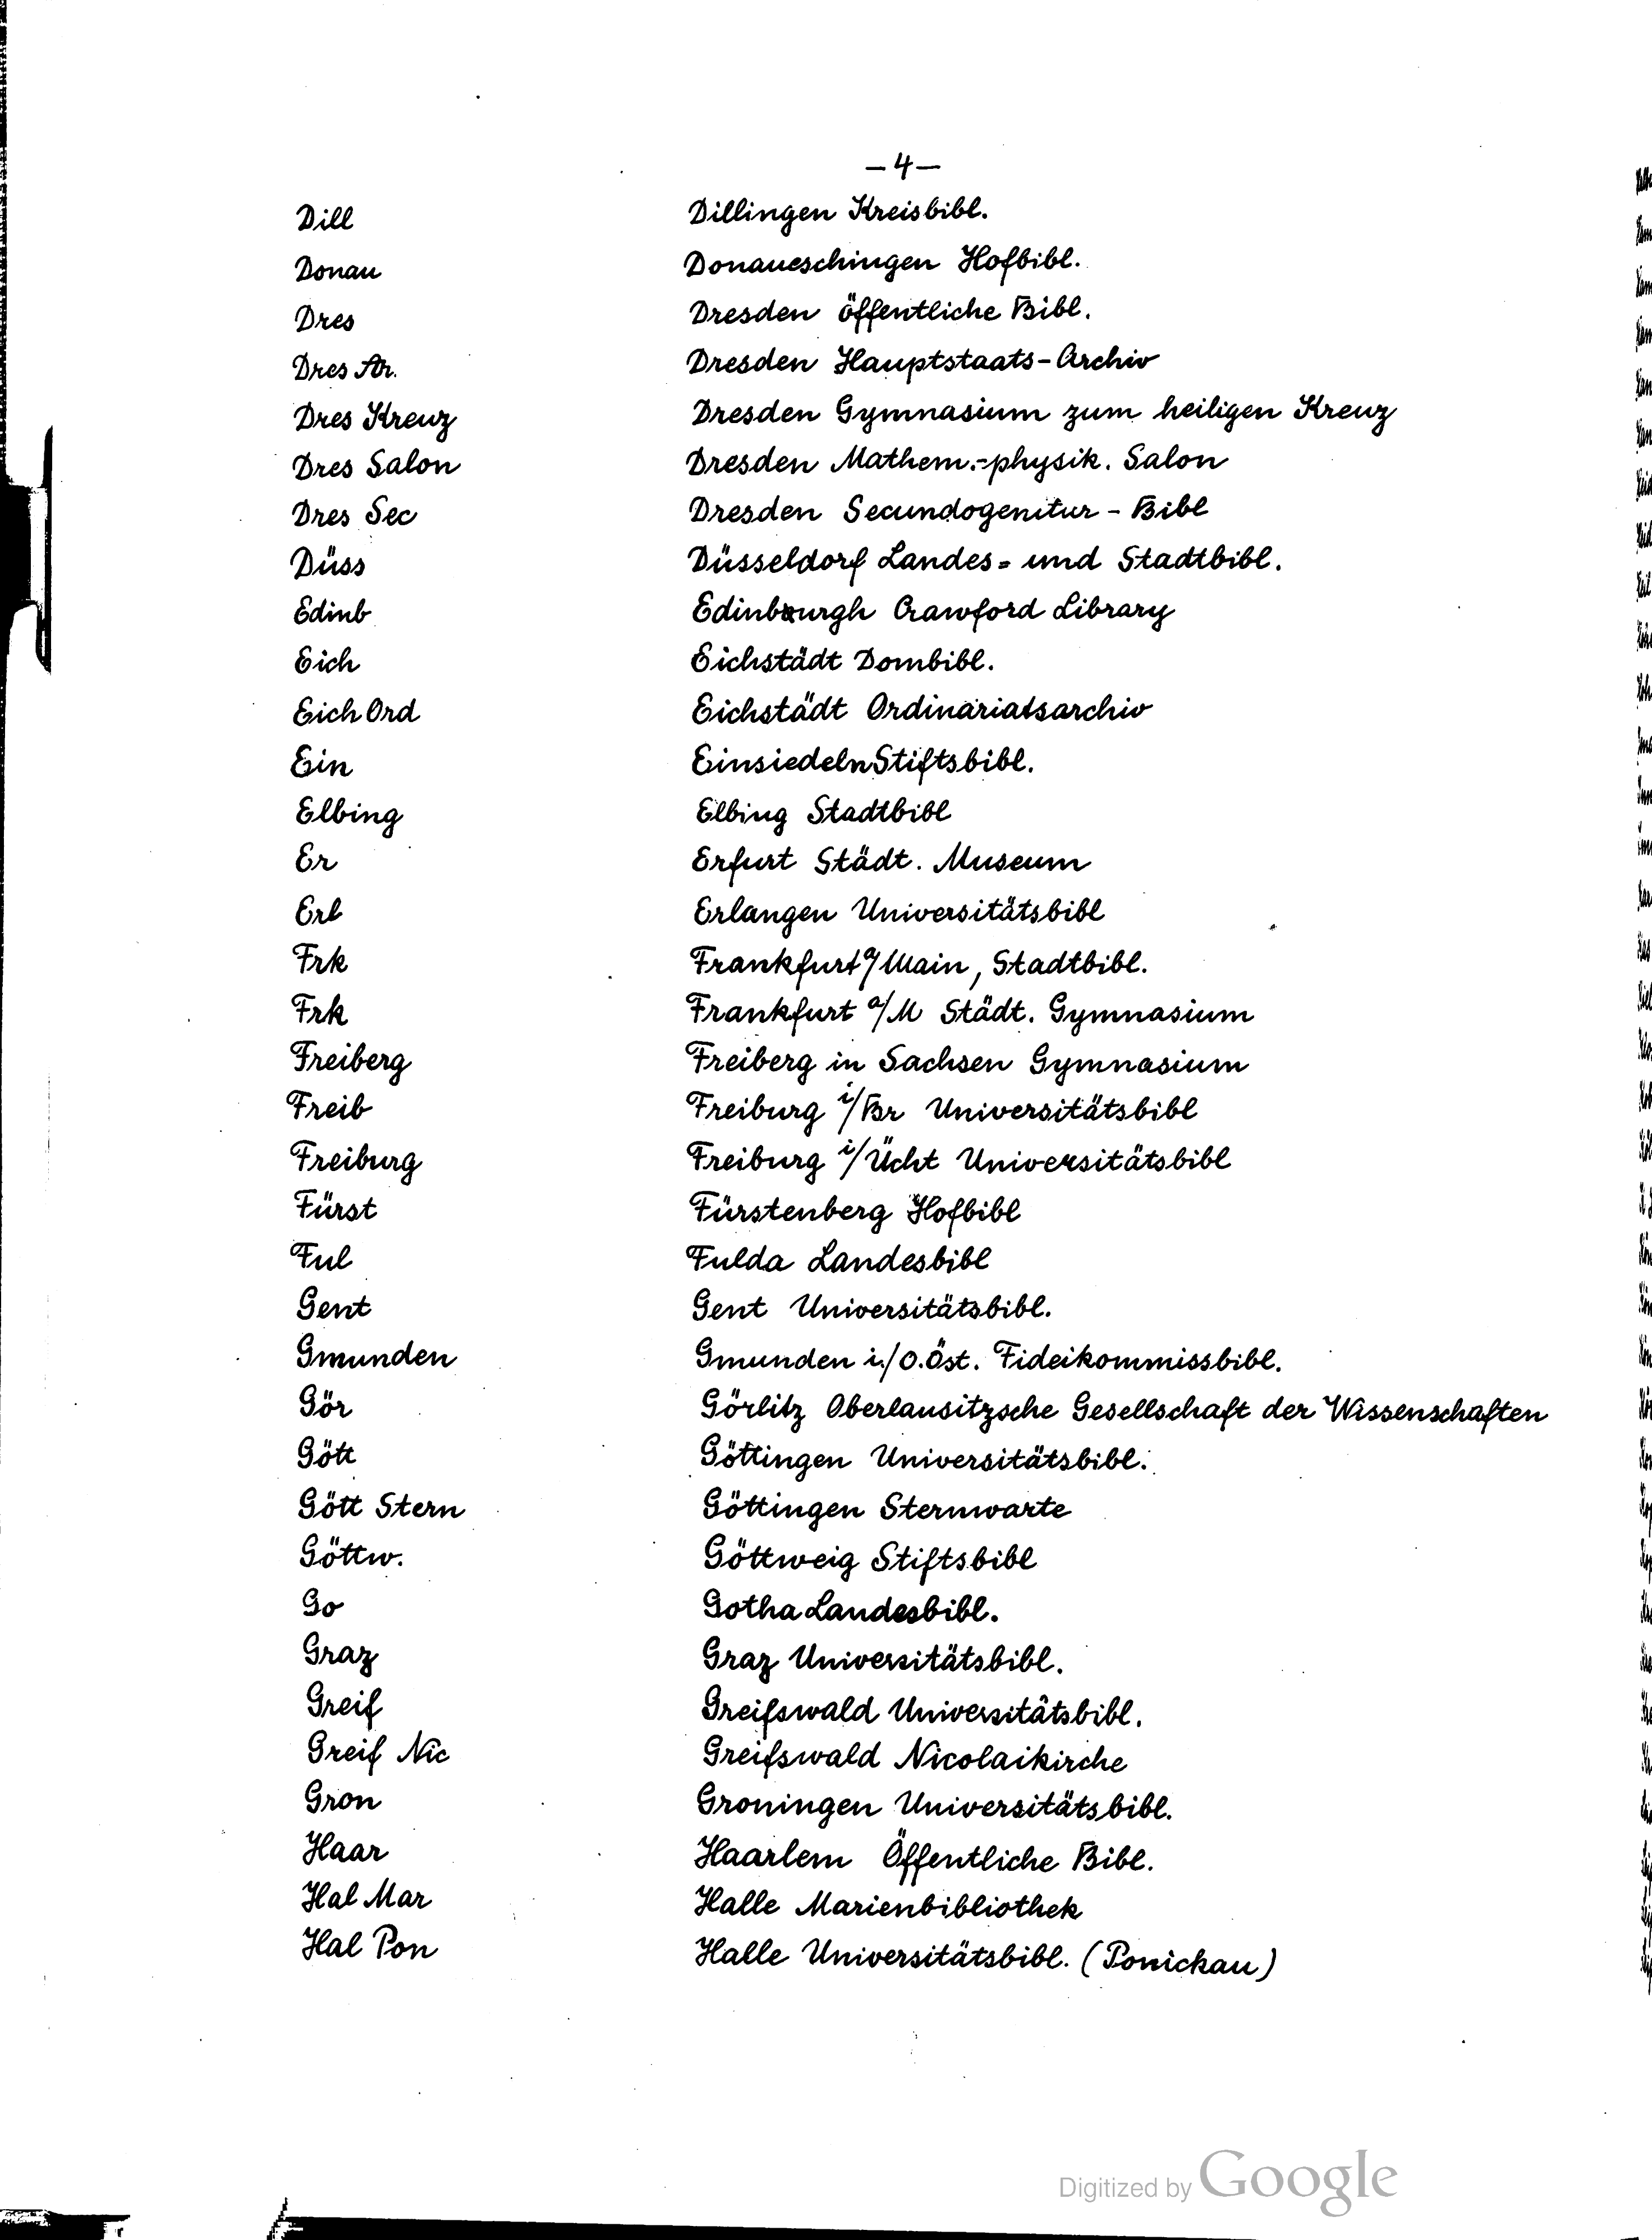 —4—
Dill Dillingen Kreisbibl.
Donau Donaueschingen Hofbibl.
Dres Dresden öffentliche Bibl.
Dres Ar. Dresden Hauptstaats-Archiv
Dres Kreuz Dresden Gymnasium zum heiligen Kreuz
Dres Salon Dresden Mathem.-physik. Salon
Dres Sec Dresden Secundogenitur - Bibl
Düss Düsseldorf Landes= und Stadtbibl.
Edinb Edinburgh Crawford Library
Eich Eichstädt Dombibl.
Eich Ord Eichstädt Ordinariatsarchiv
Ein Einsiedeln Stiftsbibl.
Elbing Elbing Stadtbibl
Er Erfurt Städt. Museum
Erl Erlangen Universitätsbibl
Frk Frankfurt a/Main, Stadtbibl.
Frk Frankfurt a/M Städt. Gymnasium
Freiberg Freiberg in Sachsen Gymnasium
Freib Freiburg i/Br Universitätsbibl
Freiburg Freiburg i/Ücht Universitätsbibl
Fürst Fürstenberg Hofbibl
Ful Fulda Landesbibl
Gent Gent Universitätsbibl.
Gmunden Gmunden i./O.Öst. Fideikommissbibl.
Gör Görlitz Oberlausitzsche Gesellschaft der Wissenschaften
Gött Göttingen Universitätsbibl.
Gött Stern Göttingen Sternwarte
Göttw. Göttweig Stiftsbibl
Go Gotha Landesbibl.
Graz Graz Universitätsbibl.
Greif Greifswald Universitätsbibl.
Greif Nic Greifswald Nicolaikirche
Gron Groningen Universitätsbibl.
Haar Haarlem Öffentliche Bibl.
Hal Mar Halle Marienbibliothek
Hal Pon Halle Universitätsbibl. (Ponickau)
Digitized by Google